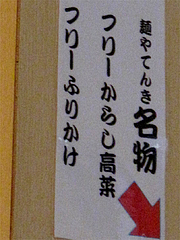 麺やてんき名物
フリーからし高菜
フリーふりかけ